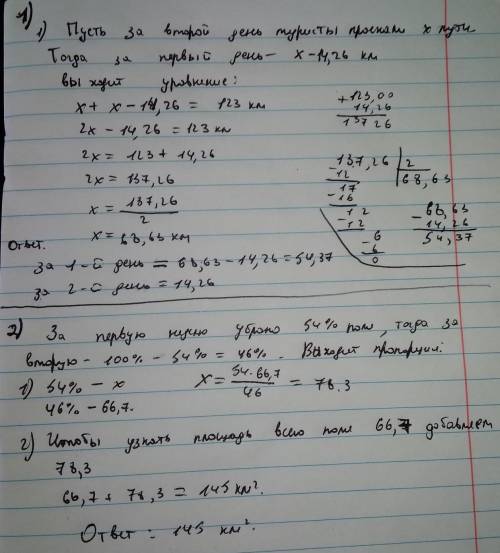 1)
1) Пусть за второй день туристы проехали x пути
Тогда за первый день - x-14,26 км
выходит уравнение:
x + x - 14,26 = 123 км
2x - 14,26 = 123 км
2x = 123 + 14,26
2x = 137,26
x = 137,26 / 2
x = 68,63 км
+123,00
14,26
137 26
137,26 | 2
68,63
-12
17
-16
12
-12
-6
6
0
-68,63
14,26
54,37
Ответ.
За 1-й день = 68,63 - 14,26 = 54,37
За 2-й день = 14,26
2) За первую нужно убрано 54% поля, тогда за
вторую - 100% - 54% = 46%. Выходит пропорция:
1) 54% - x
x = 54·66,7 / 46 = 78.3
46% - 66,7.
2) Чтобы узнать площадь всего поля 66,7 добавляем
78,3
66,7 + 78,3 = 145 км².
Ответ: 145 км².